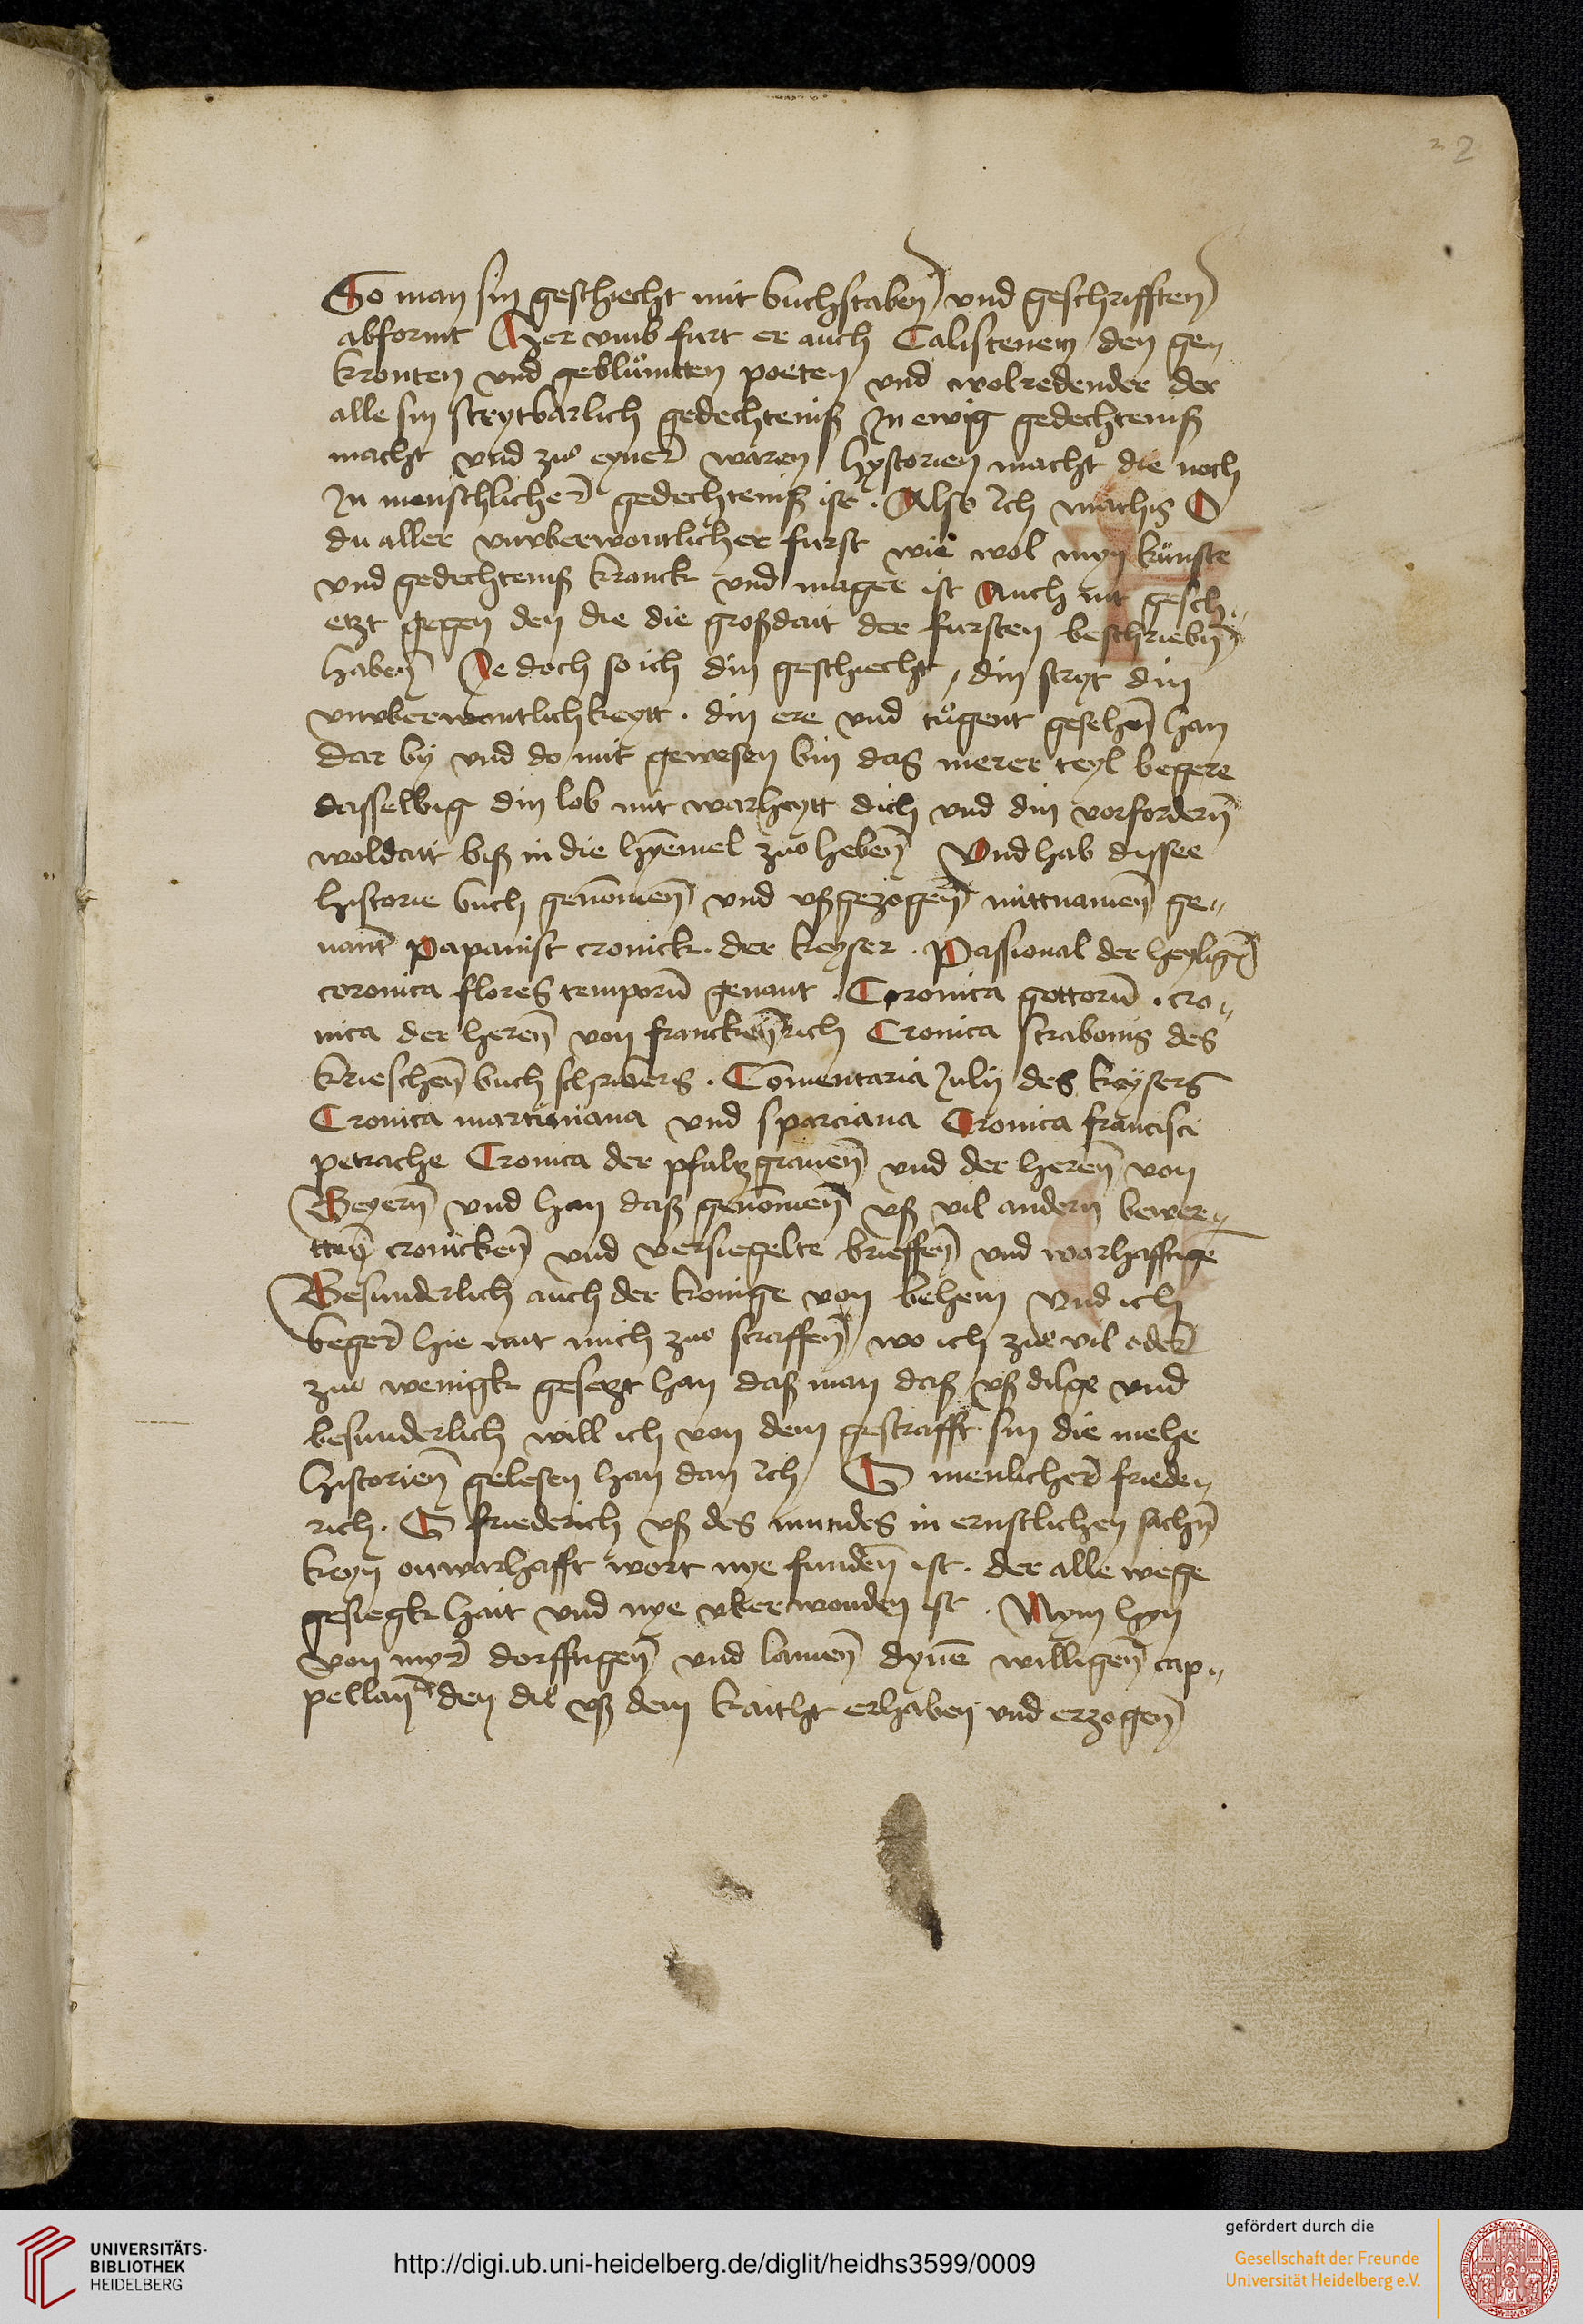 2 2
So man sin geschiecht mit buchstaben̄ vnd geschrifften̄
abformt Her vmb furt er auch Calistenem den gen
kronten vnd geblůmtten poeten vnd wolredender der
alle sin strytbarlich gedechteniß In ewig gedechteniß
macht vnd zuo eyner waren hystorien macht die noch
In menschlicher gedechteniß ist . Also Ich mathis O
du aller vnvberwontlicher furst wie wol myn kůnste
vnd gedechteniß kranck vnd mager ist Auch nit gesch„
etzt gegen den die die großdait der fursten beschriebn̄
haben̄ Je doch so ich din geschiecht , din stryt din
vnvberwontlichkeytt . din ere vnd tůgent gesehen̄ han
dar by vnd do mit gewesen bin das merer teyl begere
dasselbig din lob mit warheytt dich vnd din vorfordern̄
woldait biß in die hyēmel zuo heben̄ Vnd hab disser
historie buch genōmen̄ vnd vßgezogen̄ mittnamen̄ ge„
nant Papanist cronick . der keyser . Passional der heylign̄
coronica flores temporū genant . Coronica gottorū . cro„
nica der heren̄ von francken̄rich Cronica strabonis des
krieschen̄ buch schribers . Comentaria Julij des keysers
Cronica martiniana vnd sparciana Cronica francisci
petrache Cronica der pfaltzgrauen̄ vnd der heren̄ von
Beyern̄ vnd han daß genōmen̄ vß vil andern bewer„
tten̄ cronicken̄ vnd versiegelte brieffen̄ vnd warhafftige
Besunderlich auch der konige von behem Vnd ich
beger hie mit mich zuo straffen̄ wo ich zuo vil oder
zuo wenigk gesetzt han daß man daß vß dilge vnd
besunderlich will ich von dem gestrafft sin die mehe
historien̄ gelesen han dan Ich O menlicher frieden
rich . O friederich vß des mundes in ernstlichen sachn̄
keyn onwarhafft wort nye funden̄ ist . der alle wege
gesiegk hait vnd nye vberwonden ist . Nym hyn
von myr dorfftigen̄ vnd lamen̄ dynē willigen̄ cap„
pellan̄ den du vß dem kaitht erhaben vnd erzogen̄
UNIVERSITÄTS-
BIBLIOTHEK
HEIDELBERG
http://digi.ub.uni-heidelberg.de/diglit/heidhs3599/0009
gefördert durch die
Gesellschaft der Freunde
Universität Heidelberg e.V.